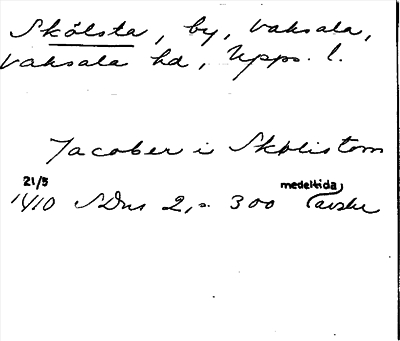 Skölsta, by, Vaksala,
Vaksala hd, Upps. l.
Jacober i Skølistom
21/5 medeltida
1410 SDns 2, s. 300 avskr